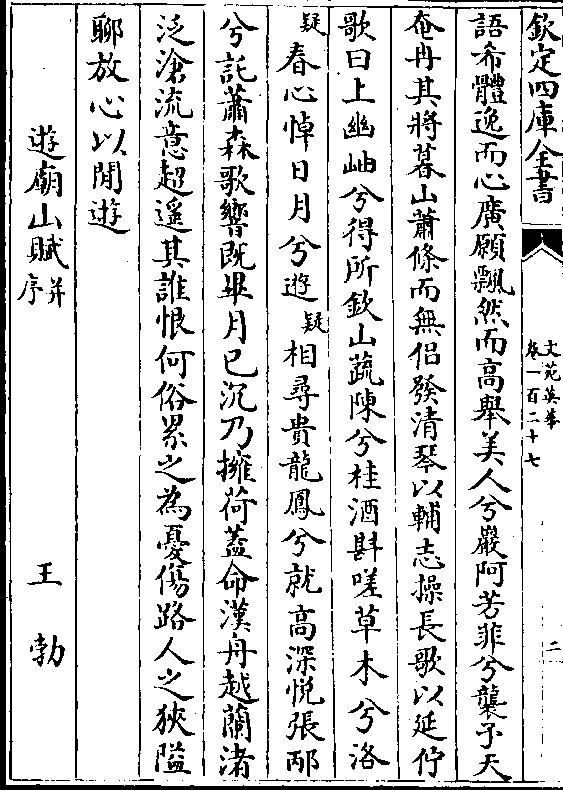 欽定四庫全書
文苑英華
卷一百二十七
二
語希體逸而心廣願飄然而高舉美人兮巖阿芳菲兮襲予天
奄冉其將暮山蕭條而無侣發清琴以輔志操長歌以延佇
歌曰上幽岫兮得所欽山蔬陳兮桂酒斟嗟草木兮洛
疑春心悼日月兮遊疑相尋貴龍鳳兮就高深悦張邴
兮託蕭森歌響既畢月已沉乃擁荷葢命漢舟越蘭渚
泛滄流意超遥其誰恨何俗累之為憂傷路人之狹隘
聊放心以閒遊
遊廟山賦并序 王勃